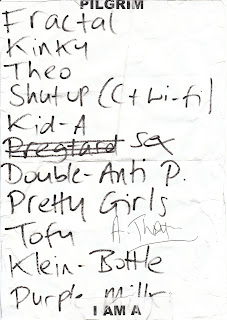 PILGRIM
Fractal
Kinky
Theo
Shut up (C+Li-fi)
Kid-A
Pregtard Sex
Double-Anti P.
Pretty Girls
Tofu
Klein-Bottle
Purple Milk
I AM A